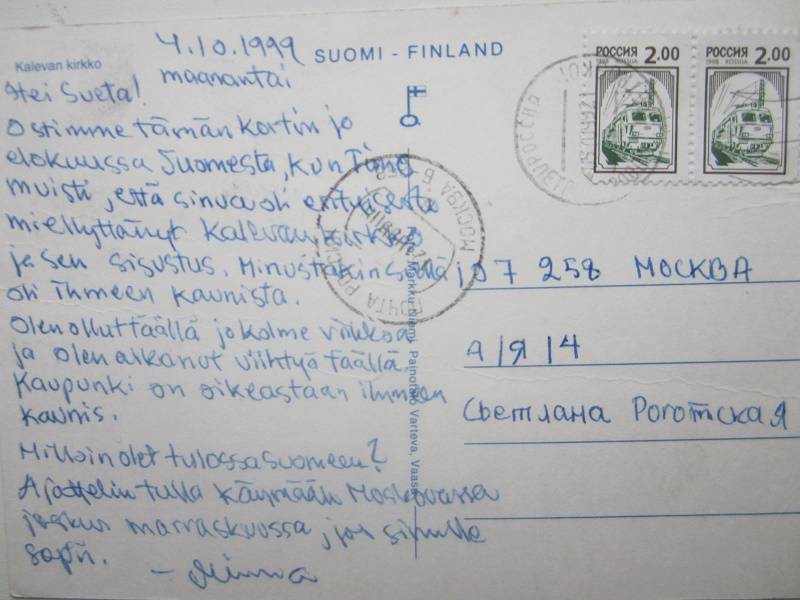 Kalevan kirkko
4.10.1999
SUOMI - FINLAND
maanantai
Hei Sveta!
Ostimme tämän kortin jo
elokuussa Suomesta, kun
muisti, että sinua oli erityisesti
miellyttänyt Kalevan kirkko
ja sen sisustus. Minustakin siellä
oli ihmeen kaunista.
Olen ollut täällä jo kolme viikkoa
ja olen alkanut viihtyä täällä.
Kaupunki on oikeastaan ihmeen
kaunis.
Milloin olet tulossa Suomeen?
Ajattelin tulla käymään Moskovassa
joskus marraskuussa, jos sinulle
sopii.
– Minna
РОССИЯ 2.00
1998 ROSSIJA
РОССИЯ 2.00
1998 ROSSIJA
107 258 МОСКВА
А/Я 14
Светлана Роготская
Markku Niemi Painotalo Varteva, Vaasa
МОСКВА
ПОЧТА РОССИИ